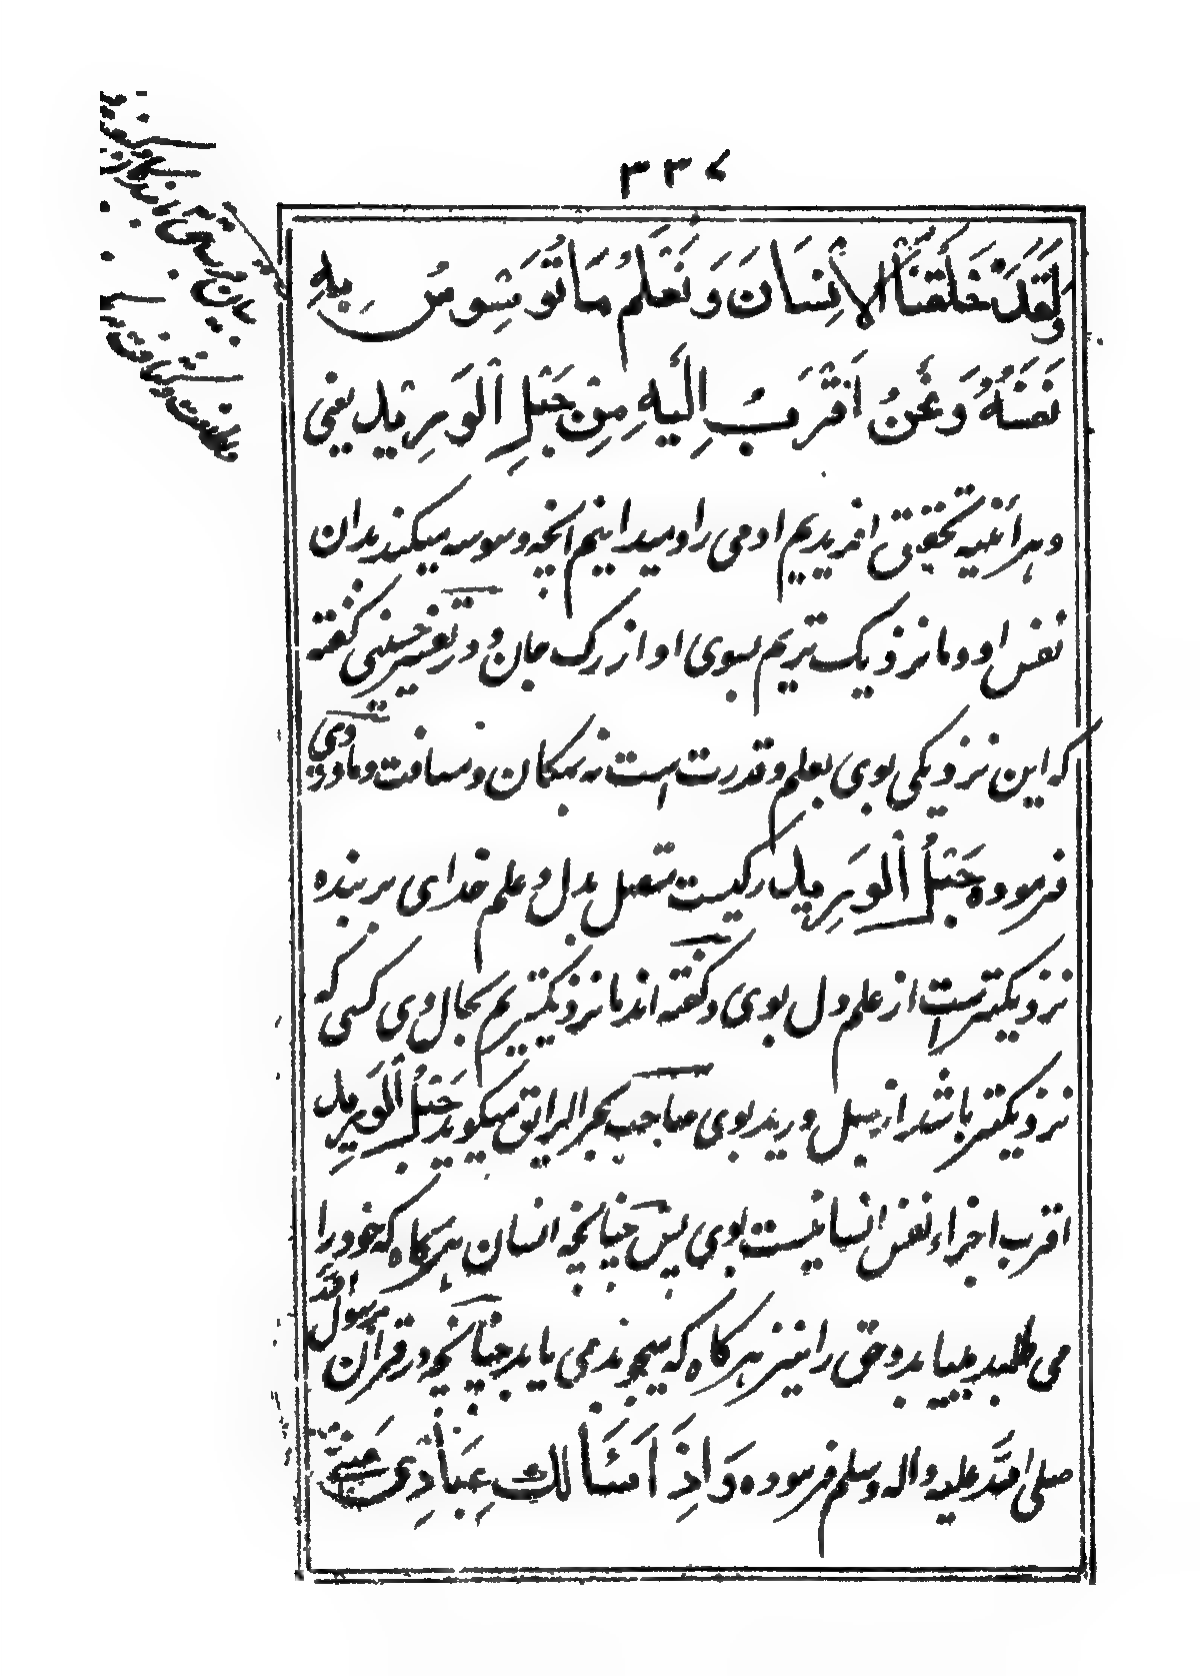 ۳۳۷
وَلَقَدْ خَلَقْنَا الْاِنْسَانَ وَنَعْلَمُ مَا تُوَسْوِسُ بِهِ
نَفْسُهُ وَنَحْنُ اَقْرَبُ اِلَيْهِ مِنْ حَبْلِ الْوَرِيْدِ یعنی
و هر آئنیه تحقیق افریدیم ادمی را و میدانیم آنچه وسوسه میکند بدان
نفس او و ما نزدیک تریم بسوی او از رگ جان و در تفسیر حسینی گفته
که این نزدیکی بوی بعلم و قدرت است نه بمکان و مسافت و ماوردی
فرموده حَبْلُ الْوَرِيد رگیست متصل بدل و علم خدای بر بنده
نزدیکتر است از علم دل بوی و گفته اند ما نزدیکتریم بحال وی کسی که
نزدیکتر باشد از حبل ورید بوی صاحب بحر الرایق میگوید حَبْلُ الْوَرِيد
اقرب اجزاء نفس انسانیست بوی پس چنانچه انسان هر گاه که خود را
می طلبد بیابد و حق را نیز هر گاه که بجوید می یابد چنانچه در قرآن رسول الله
صلی الله علیه و اله و سلم فرموده وَاِذَا سَئَالَكَ عِبَادِی عَنِّی